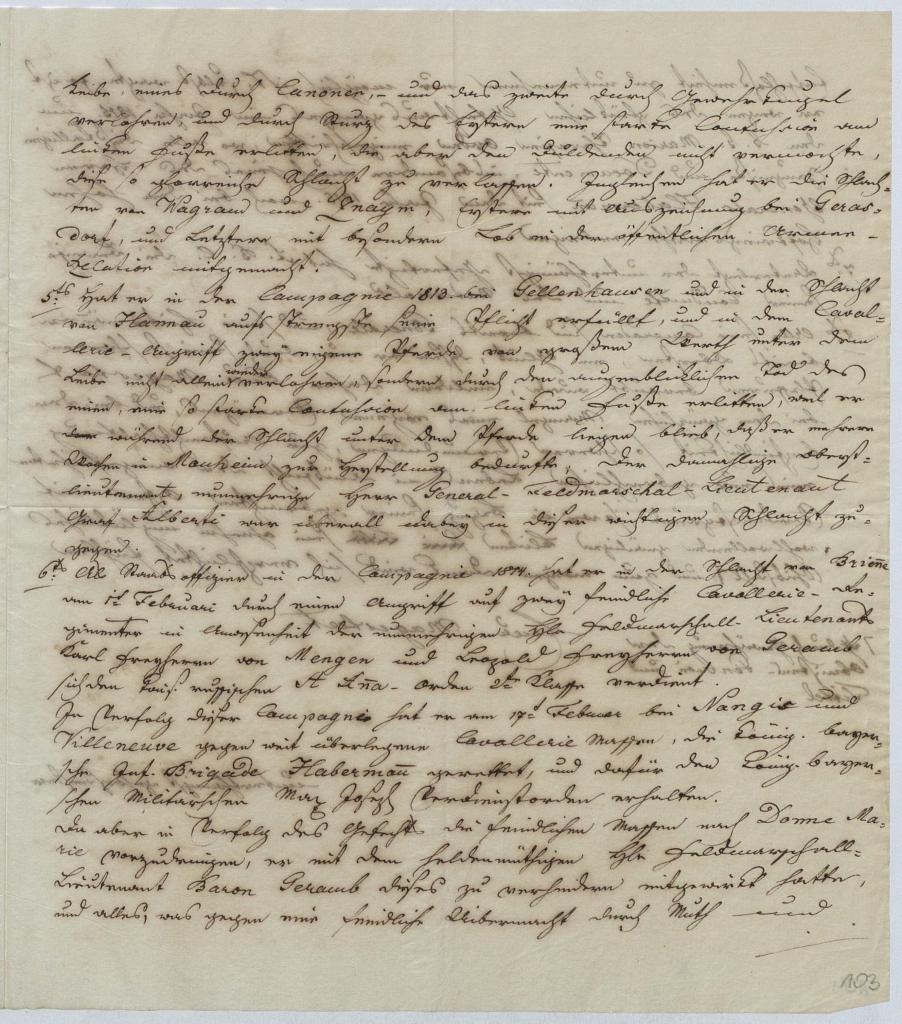 Leibe, eines durch Canonen,- und das zweite durch Gewehrkugel
verlohren, und durch Sturz des Erstern eine starke Contusion am
linken Fuße erlitten, die aber den Duldenden nicht vermochte,
diese so glorreiche Schlacht zu verlassen. Ingleichen hat er die Schlach-
ten von Wagram und Znaym, Erstere mit Auszeichnung bei Geras-
dorf, und Letztere mit besondern Lob in der öffentlichen Armee-
Relation mitgemacht.
5tens Hat er in der Campagnie 1813 bei Gellenhausen und in der Schlacht
von Hannau aufs strengste seine Pflicht erfüllt, und in dem Caval-
lerie-Angriff zwey eigene Pferde von großem Werth unter dem
Leibe nicht allein wieder verlohren, sondern durch den augenblicklichen Tod des
einen, eine so starke Contusion am linken Fuße erlitten, weil er
während der Schlacht unter dem Pferde liegen blieb, daß er mehrere
Wochen in Manheim zur Herstellung bedurfte, der damahlige Oberst-
lieutenant, nunmehrige Herr General-Feldmarschal-Lieutenant
Graf Alberti war überall dabey in dieser wichtigen Schlacht zu-
gegen.
6tens Als Staabsoffizier in der Campagnie 1814. hat er in der Schlacht von Brienne
am 1t Februari durch einen Angriff auf zwey feindliche Cavallerie-Re-
gimenter in Anwesenheit der nunmehrigen Hln Feldmarschall-Lieutenants
Karl Freyherrn von Mengen und Leopold Freyherrn von Geramb
sich den kais. russischen St Anna-Orden 2ter Klasse verdient.
In Verfolg dieser Campagnie hat er am 17t Februar bei Nangis und
Villeneuve gegen weit überlegene Cavallerie Massen, die königl. bayer-
sche Inf. Brigade Habermann gerettet, und dafür den königl. bayer-
schen Militärischen Max Joseph Verdienstorden erhalten.
Da aber in Verfolg des Gefechts die feindlichen Massen nach Donne Ma-
rie vorzudringen, er mit dem heldenmüthigen Hln Feldmarschall-
Lieutenant Baron Geramb dieses zu verhindern mitgewirkt hatte,
und alles, was gegen eine feindliche Uibermacht durch Muth und
103